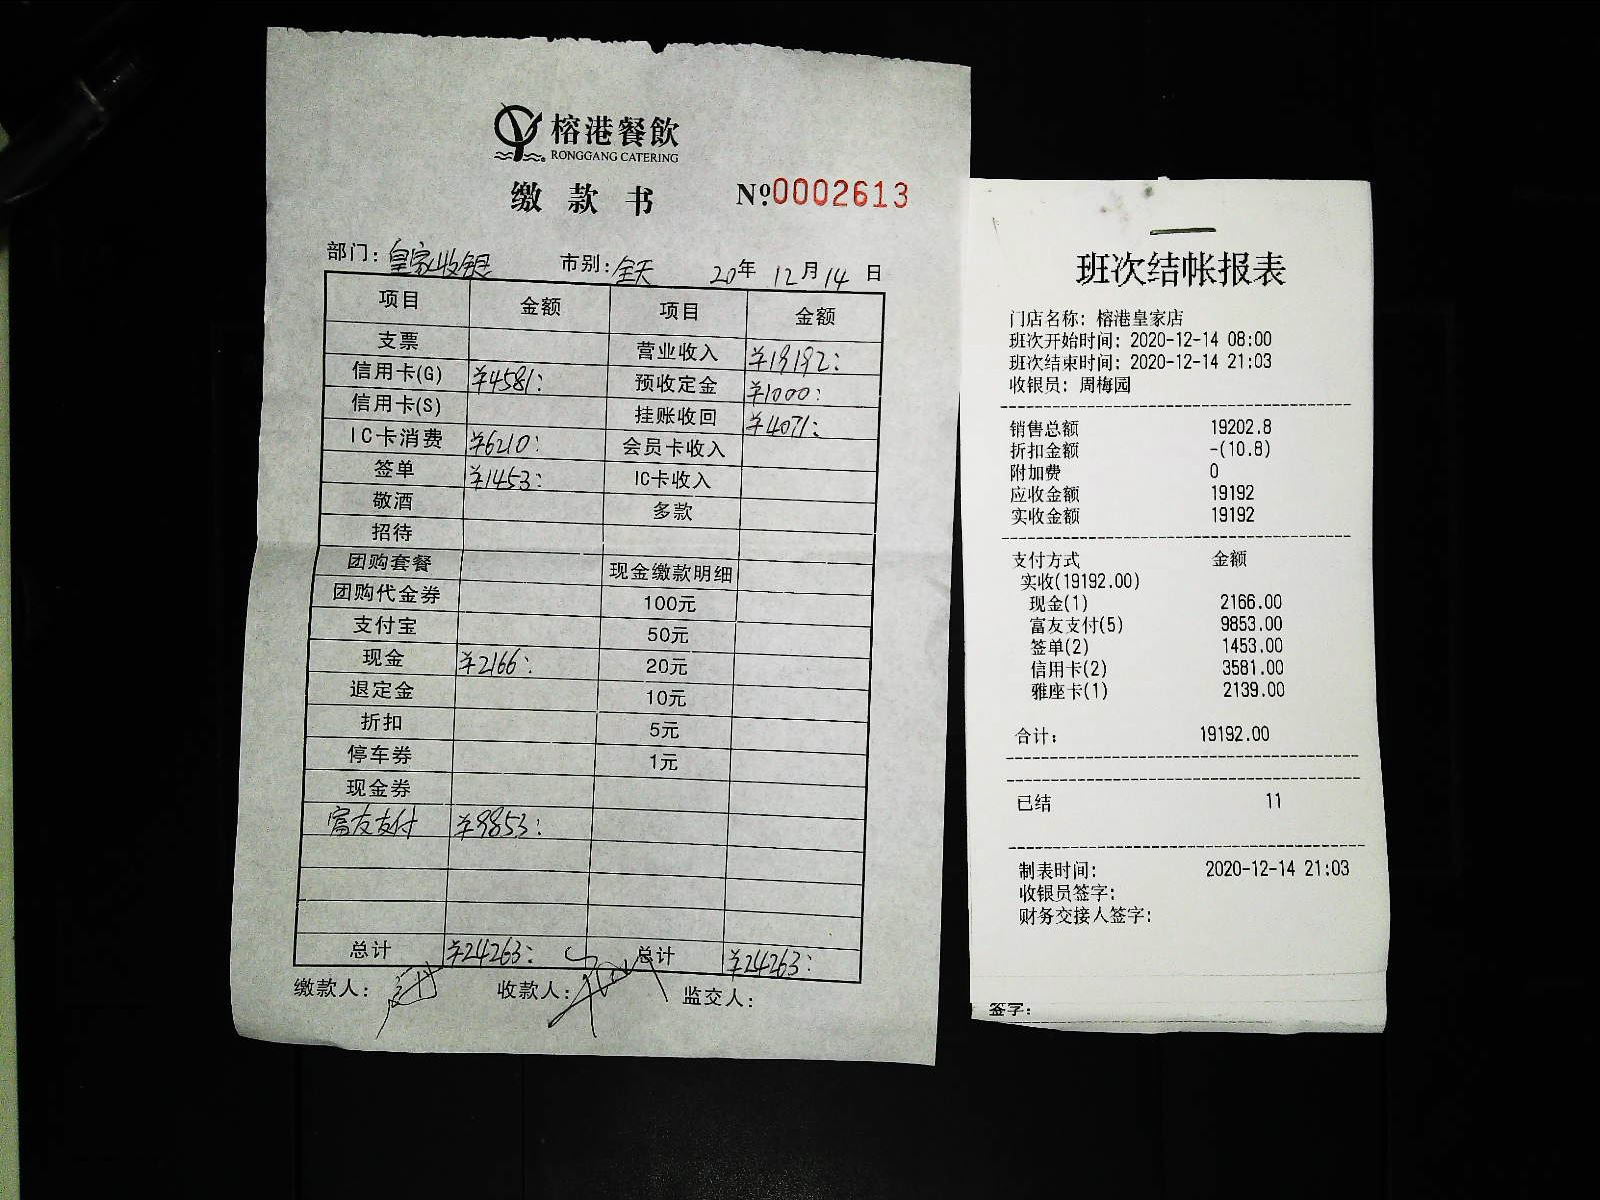 榕港餐飲
RONGGANG CATERING
缴款书 №0002613
部门：皇家收银 市别：全天 20年12月14日
项目 金额 项目 金额
支票 营业收入 ¥19192：
信用卡(G) ¥4581： 预收定金 ¥1000：
信用卡(S) 挂账收回 ¥4071：
IC卡消费 ¥6210： 会员卡收入
签单 ¥1453： IC卡收入
敬酒 多款
招待
团购套餐 现金缴款明细
团购代金券 100元
支付宝 50元
现金 ¥2166： 20元
退定金 10元
折扣 5元
停车券 1元
现金券
富友支付 ¥9853：
总计 ¥24263： 总计 ¥24263：
缴款人： 收款人： 监交人：
班次结帐报表
门店名称: 榕港皇家店
班次开始时间: 2020-12-14 08:00
班次结束时间: 2020-12-14 21:03
收银员: 周梅园
销售总额 19202.8
折扣金额 -(10.8)
附加费 0
应收金额 19192
实收金额 19192
支付方式 金额
实收(19192.00)
现金(1) 2166.00
富友支付(5) 9853.00
签单(2) 1453.00
信用卡(2) 3581.00
雅座卡(1) 2139.00
合计: 19192.00
已结 11
制表时间: 2020-12-14 21:03
收银员签字:
财务交接人签字:
签字: